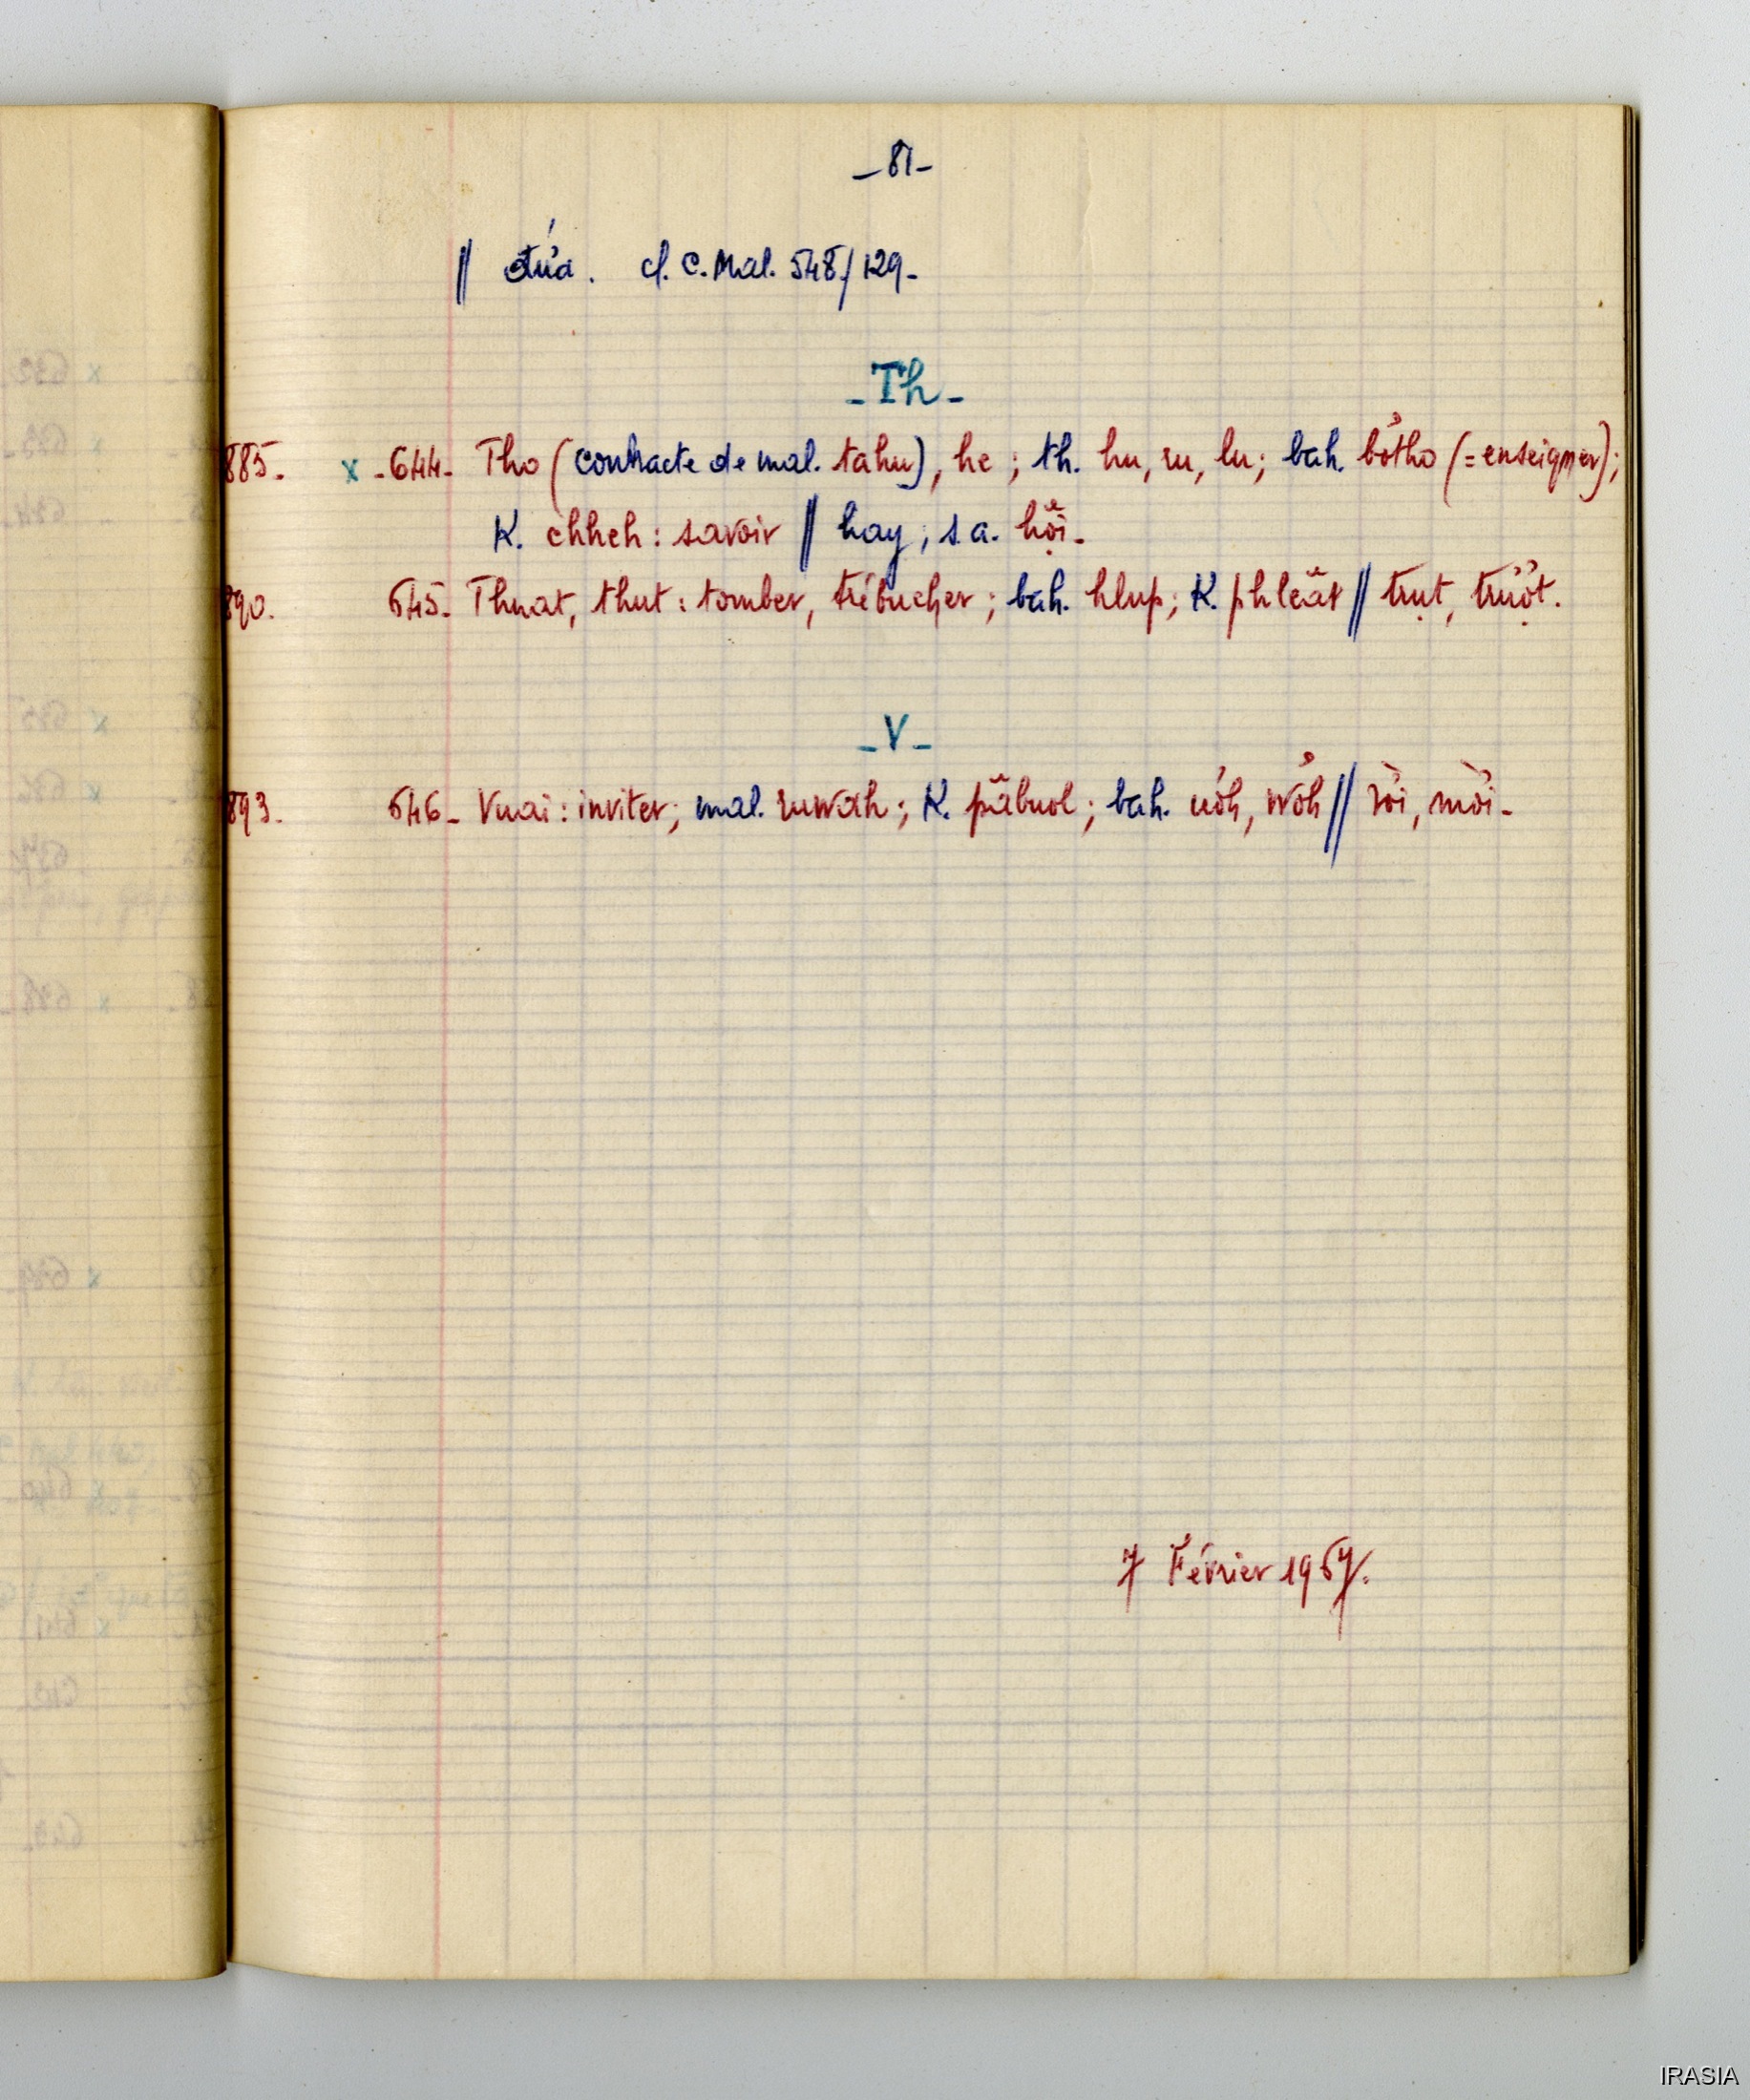 - 81 -
|| đứa. cf. C. Mal. 548/129 -
- Th -
885. x - 644 - Tho (contracte de mal. tahu), he ; th. hu, ru, lu ; bah. bơtho (= enseigner) ;
K. chheh : savoir || hay ; s.a. hội -
890. 645 - Thuat, thut : tomber, trébucher ; bah. hlup ; K. phlĕăt || trụt, trượt.
- V -
893. 646 - Vuai : inviter ; mal. ruwah ; K. păbuol ; bah. uôh, wơh || rời, mời -
7 Février 1967.
IRASIA